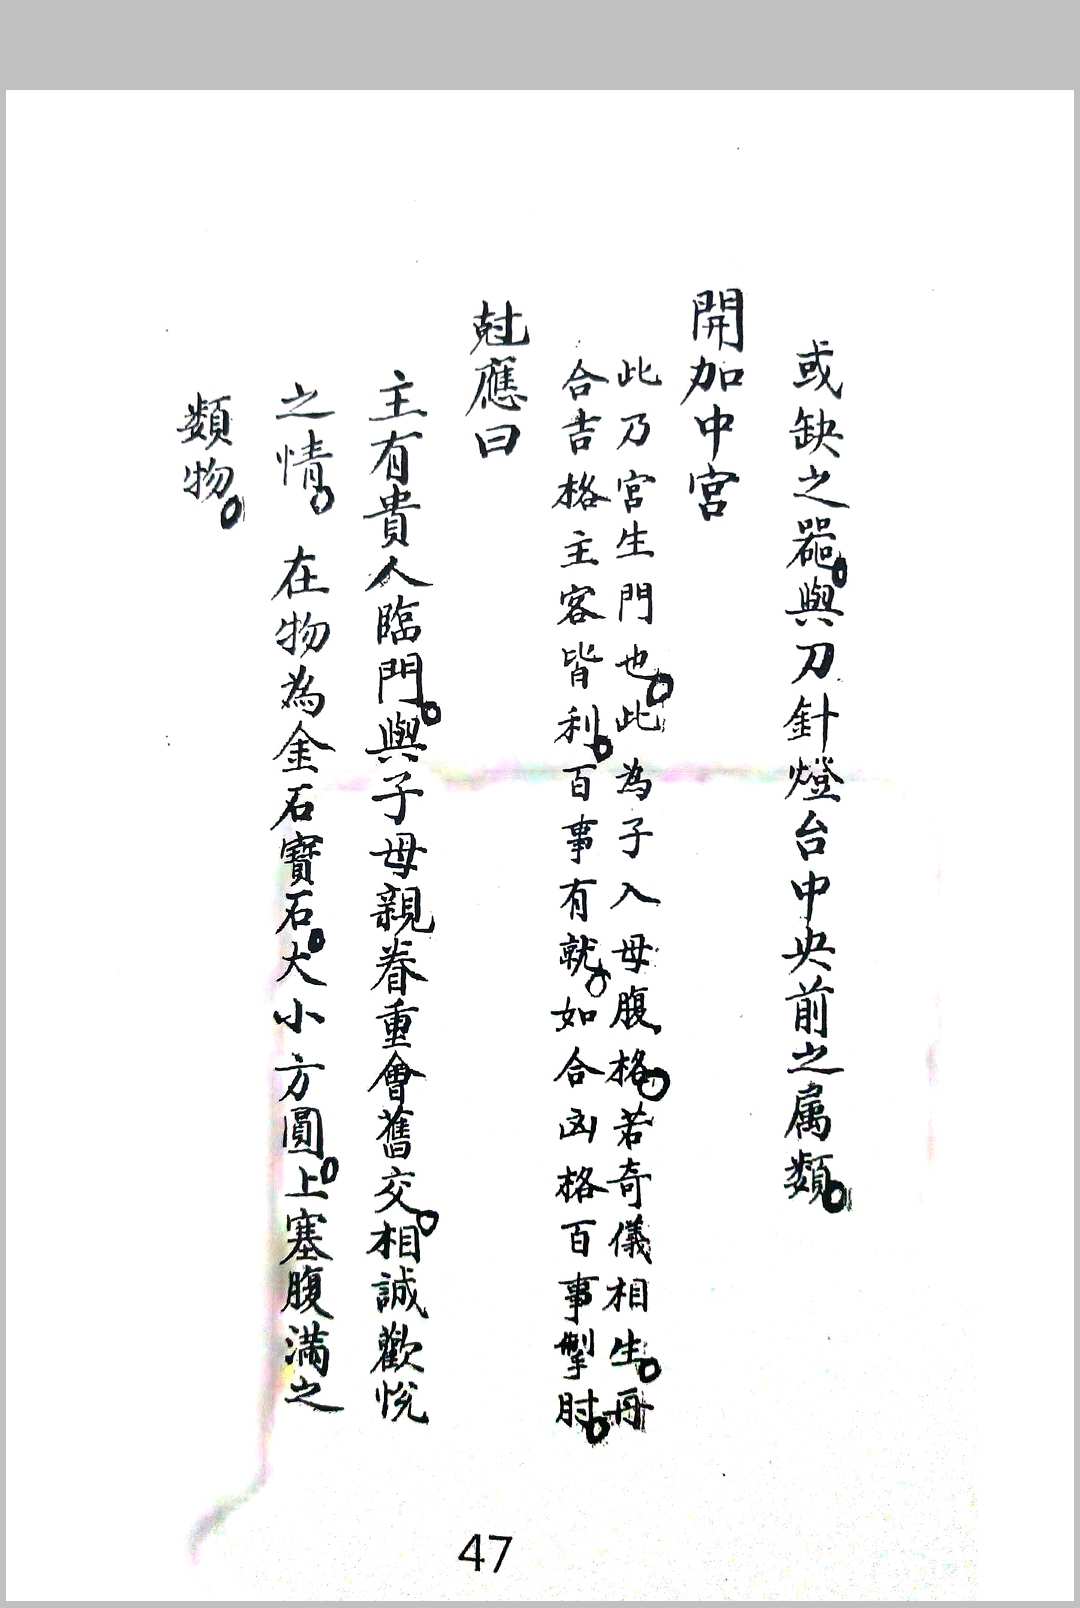 或缺之器。與刀針燈台中央前之属類。
開加中宮
此乃宮生門也。此為子入母腹格。若奇儀相生。再
合吉格主客皆利。百事有就。如合凶格百事掣肘。
尅應曰
主有貴人臨門。與子母親眷重會舊交。相誠歡悅
之情。在物為金石寶石。大小方圓。上塞腹滿之
類物。
47